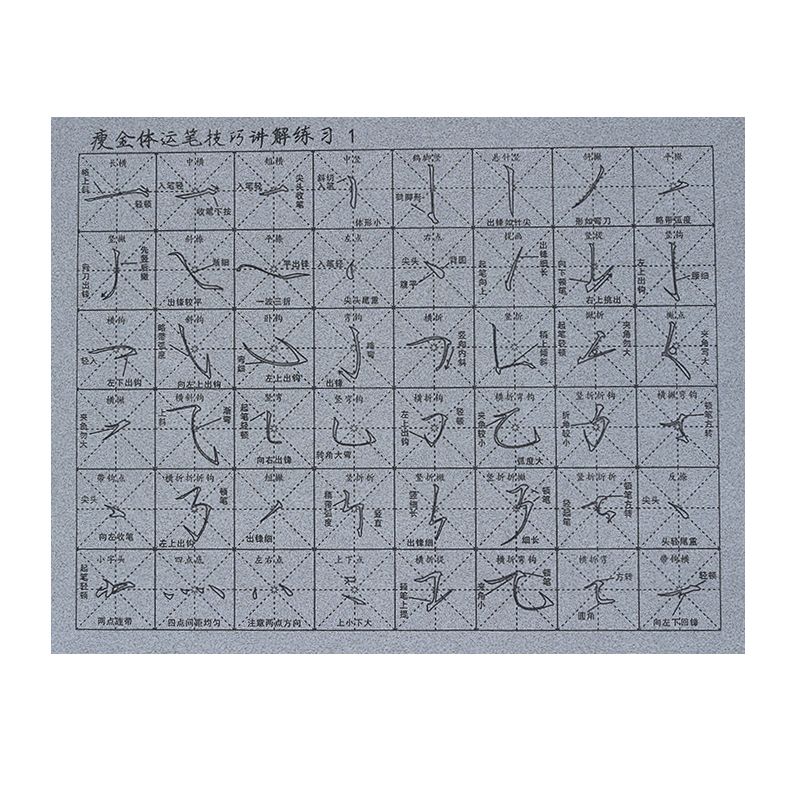 瘦金体运笔技巧讲解练习 1
长横 中横 短横 中竖 鹤脚竖 悬针竖 斜撇 平撇
稍上斜 轻顿 入笔轻 收笔下按 入笔轻 尖头收笔 斜切入笔 体形小 鹤脚形 出锋如针尖 形如弯刀 略带弧度
竖撇 斜捺 平捺 左点 右点 提画 竖提 竖钩
先竖后撇 向刀出锋 渐细 出锋较平 平出锋 一波三折 入笔轻 尖头尾重 尖头 背圆 腹平 起笔向上 出锋细长 向下顿笔 右上挑出 左上出钩 腰细
横钩 斜钩 卧钩 弯钩 横折 竖折 撇折 撇点
轻入 左下出钩 略带弧度 向左上出钩 弯细 左上出钩 略弯 出锋 竖向内斜 稍上倾斜 起笔轻顿 夹角勿大 夹角弯大
横撇 横斜钩 竖弯 竖弯钩 横折钩 横折弯钩 竖折折钩 横撇弯钩
夹角勿大 上斜 渐弯 起笔轻顿 向右出锋 转角大弯 左上出钩 轻顿 夹角较小 弧度大 折角较小 顿笔方转
带钩点 横折折折钩 短撇 竖折折 竖折撇 横折折撇 反捺
尖头 向左收笔 顿笔 左上出钩 出锋细 稍带弧度 竖直 竖稍长 出锋细 顿笔 细长 轻起笔 顿笔方转 尖头 头轻尾重
小字头 四点底 左右点 上下点 横折提 横折弯钩 横折弯 带钩横
起笔轻顿 两点连带 四点间距均匀 注意两点方向 上小下大 顿笔上提 夹角小 顿笔 方转 圆角 轻顿 向左下回锋